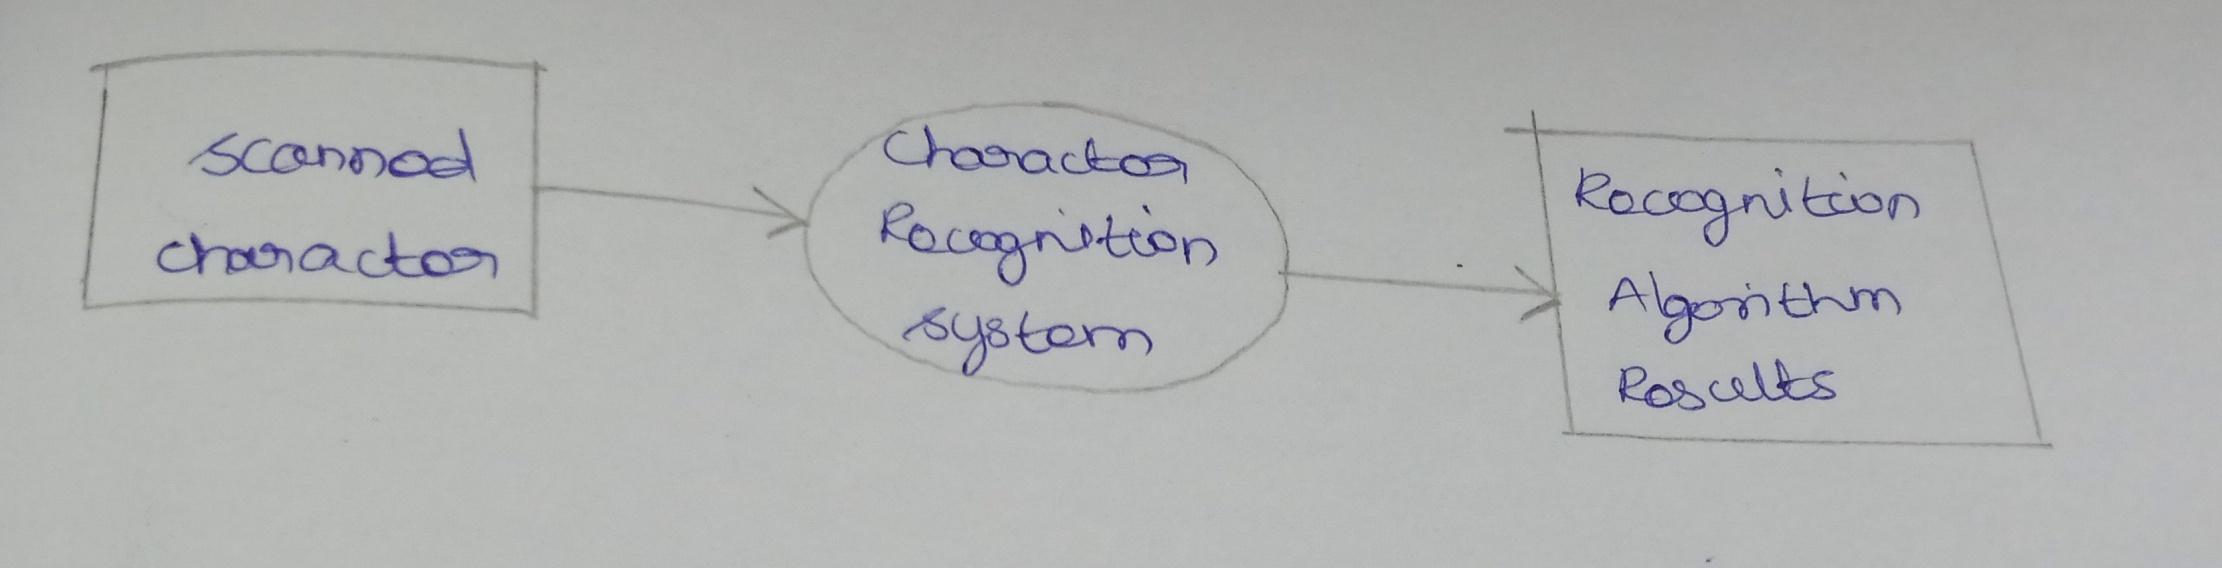 scanned
character
Character
Recognition
system
Recognition
Algorithm
Results